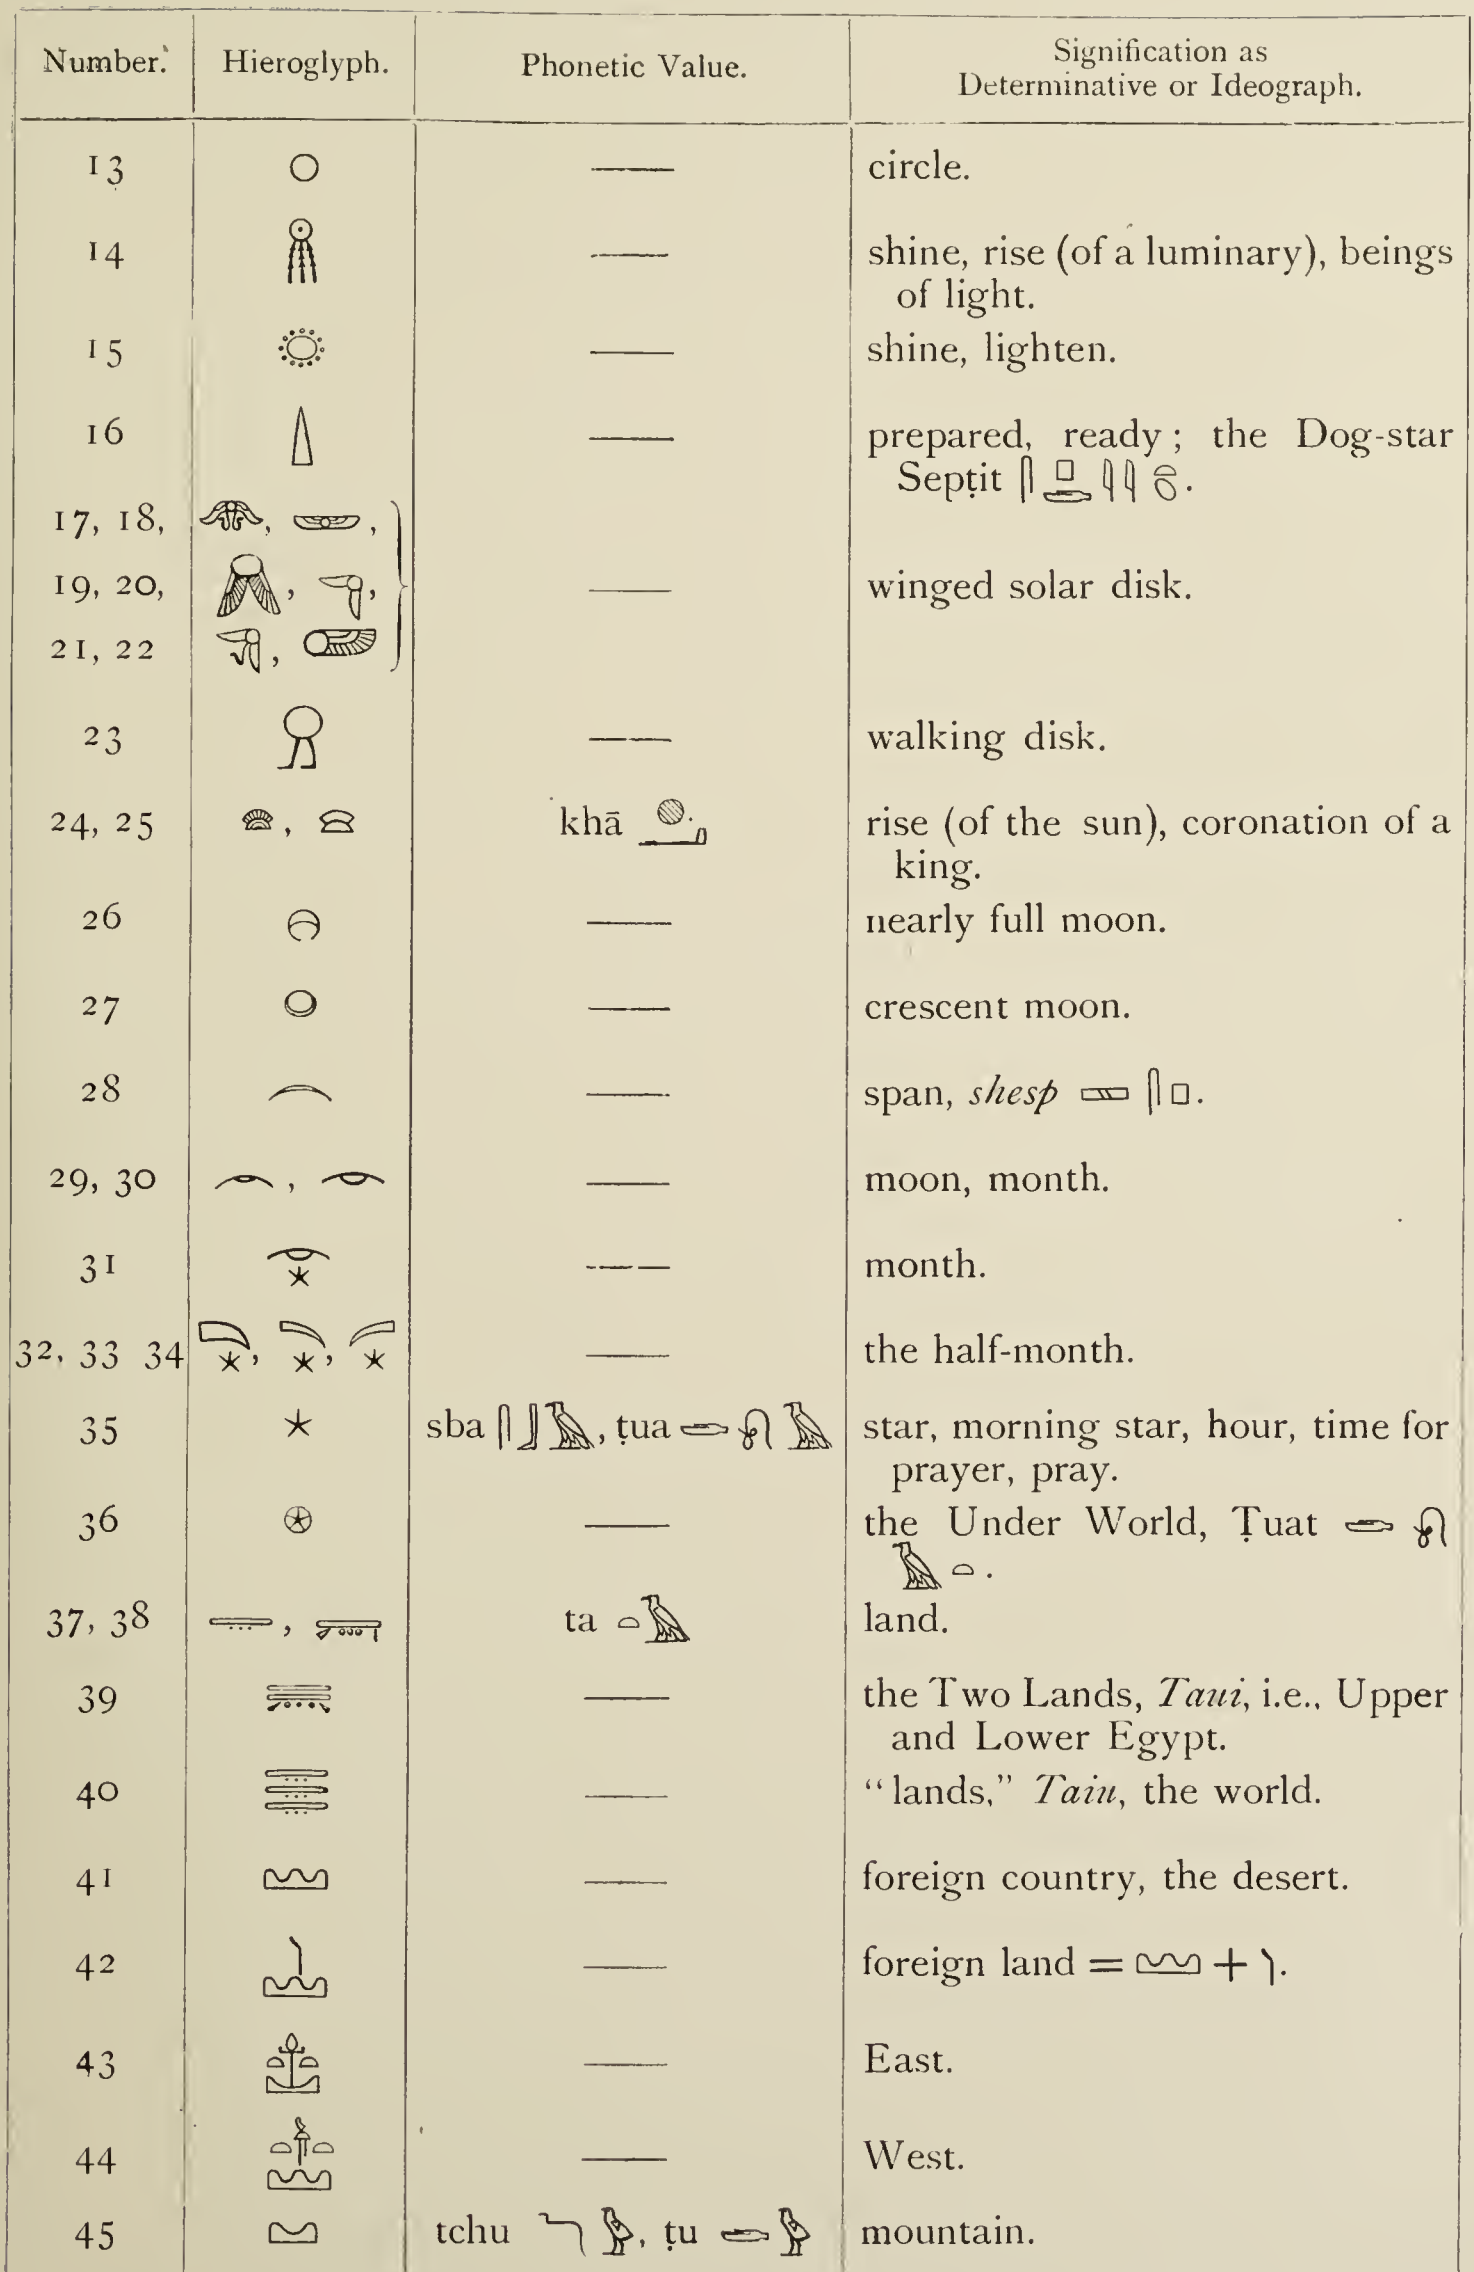 Number. Hieroglyph. Phonetic Value. Signification as
Determinative or Ideograph.
13 — circle.
14 — shine, rise (of a luminary), beings
of light.
15 — shine, lighten.
16 — prepared, ready; the Dog-star
Sepṭit 𓋴𓊪𓂧𓇋𓇋𓏏.
17, 18,
19, 20, — winged solar disk.
21, 22
23 — walking disk.
24, 25 𓈍, khā 𓐍𓂝 rise (of the sun), coronation of a
king.
26 — nearly full moon.
27 — crescent moon.
28 — span, shesp 𓈙𓋴𓊪.
29, 30 — moon, month.
31 — month.
32, 33 34 — the half-month.
35 𓇼 sba 𓋴𓃀𓄿, ṭua 𓂧𓍯𓄿 star, morning star, hour, time for
prayer, pray.
36 𓇽 — the Under World, Ṭuat 𓂧𓍯
𓄿𓏏.
37, 38 𓇾, 𓇿 ta 𓏏𓄿 land.
39 — the Two Lands, Taui, i.e., Upper
and Lower Egypt.
40 — “lands,” Taiu, the world.
41 𓈉 — foreign country, the desert.
42 — foreign land = 𓈉 + 𓌙.
43 — East.
44 — West.
45 𓈋 tchu 𓆓𓅱, ṭu 𓂧𓅱 mountain.